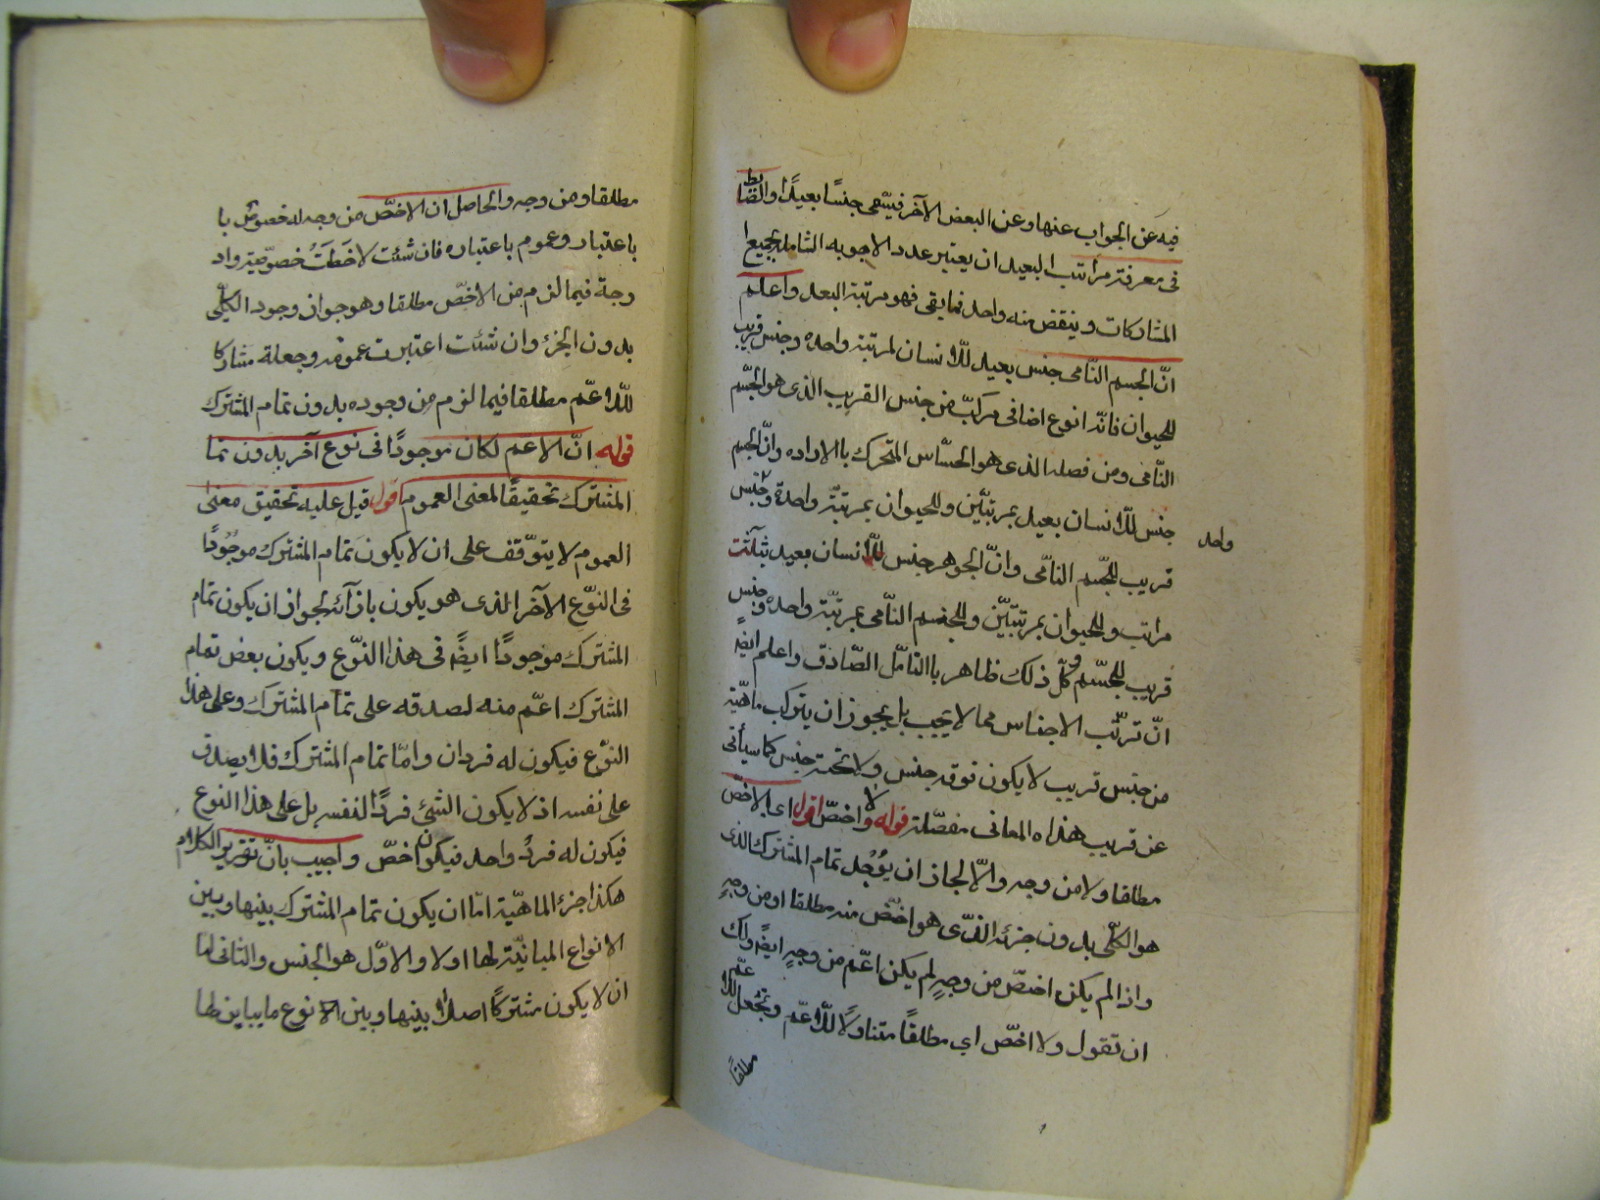 فيه عن الجواب عنها وعن البعض الآخر فيسمى جنسًا بعيدًا والضابط
فى معرفة مراتب البعيد ان يعتبر عدد الاجوبه الشامله بجميع
المشاركات وينقض منه واحد فما يبقى فهو مرتبة البعد واعلم
انّ الجسم النّامى جنس بعيد للانسان لمرتبة واحده وجنس قريب
للحيوان فانّه نوع اضافى مركّب من جنس القريب الذى هو الجسّم
النّامى ومن فصله الذى هو الحسّاس المتحرك باالاراده وانّ الجسم
جنس للانسان بعيد بمرتبتّين وللحيوان بمرتبّة واحدة وجنس
واحد
قريب للجسّم النّامّى وانّ الجوهر جنس للانسان بعيد بثلثت
مراتب وللحيوان بمرتبتيّن وللجسّم النّامى بمرتبّة واحده وجنس
قريب للجسّم وكّل ذلك ظاهر باالتامّل الصّادق واعلم ايضًا
انّ ترتّب الاجناس مما لا يجب بل يجوز ان يتركب ماهيّة
من جنس قريب لا يكون فوقه جنس ولا تحته جنس كما سيأتى
عن قريب هذاه المعانى مفصّلة قوله ولا اخصّ اقول اى لا اخصّ
مطلقا ولا من وجه والّا لجاز ان يوُجُد تمام المشترك الذى
هو الكلّى بدون جزئه الذّى هو اخصّ منه مطلقا او من وجهٍ
واذا لم يكن اخصّ من وجهٍ لم يكن اعّم من وجهٍ ايضًا ولك
ان تقول ولا اخصّ اى مطلقاً متناولًا للّاعّم وتجعل للاعّم
مطلقاً
مطلقا ومن وجه والحاصل ان الاخصّ من وجه له خصوص با
باعتبار وعموم باعتباره فان شئت لاحَظتَ خصوصّيته واد
وجة فيما لزم من الاخصّ مطلقا وهو جواز وجود الكلّى
بدون الجزئ وان شئت اعتبرت عمومه وجعلة مشاركا
للّاعّم مطلقا فيما لزم من وجوده بدون تمام المشترك
قوله انّ الاعم لكان موجودًا فى نوع آخر بدون تما
المشترك تحقيقًا لمعنى العموم اقول قيل عليه تحقيق معنى
العموم لا يتوّقف على ان لا يكون تمام المشترك موجُودًا
فى النوّع الآخر الذى هو يكون بازآئه لجواز ان يكون تمام
المشترك موجودًا ايضًا فى هذا النّوع ويكون بعض تمام
المشترك اعّم منه لصدقه على تمام المشترك وعلى هذا
النوّع فيكون له فردان وامّا تمام المشترك فلا يصدق
على نفسه اذ لا يكون الشئ فردًا لنفسه بل على هذا النوع
فيكون له فردُ واحد فيكون اخصّ واجيب بانّ تقرير الكلام
هكذا جزء الماهيّة امّا ان يكون تمام المشترك بينها وبين
الانواع المباينّة لها اولا والاوّل هو الجنس والثانى امّا
ان لا يكون مشتركًا اصلًا بينها وبين الانوع ما يباين لها